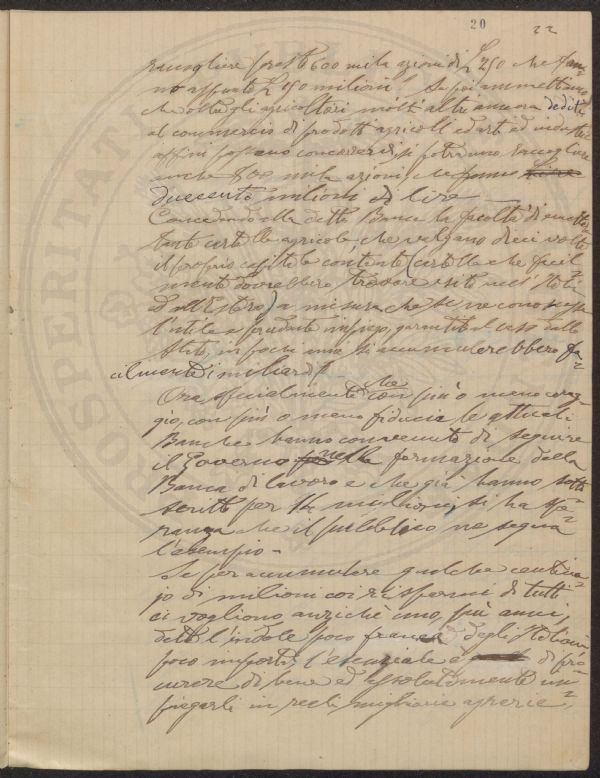 20 22
raccogliere presto 600 mila azioni di £ 250 che fan=
no appunto £ 150 milioni. Se poi ammettiamo
che oltre gli agricoltori molti altri ancora dediti
al commercio di prodotti agricoli ed arti ed industrie
affini possano concorrervi, si potranno raccogliere
anche 800 mila azioni, che fanno
duecento milioni di lire —
Concedendo alla detta Banca la facoltà di emet=
tere cartelle agricole che valgano dieci volte
il proprio capitale contante (cartelle che facil=
mente dovrebbero trovare esito in Italia
ed all'Estero) a misura che se ne conoscesse
l'utile e prudente impiego, garantito al caso dallo
Stato, in pochi anni si accumulerebbero fa=
cilmente i miliardi.
Ora specialmente che con più o meno corag=
gio, con più o meno fiducia le attuali
Banche hanno convenuto di seguire
il Governo nella formazione della
Banca di lavoro e che già hanno sotto
scritto per milioni, si ha spe=
ranza che il pubblico ne segua
l'esempio —
Se per accumulare qualche centina=
jo di milioni coi risparmi di tutti
ci vogliono anzichè uno, più anni,
data l'indole poco franca degli Italiani
poco importa, l'essenziale è di pro=
curare di bene ed assolutamente im=
piegarli in reali migliorie agrarie,